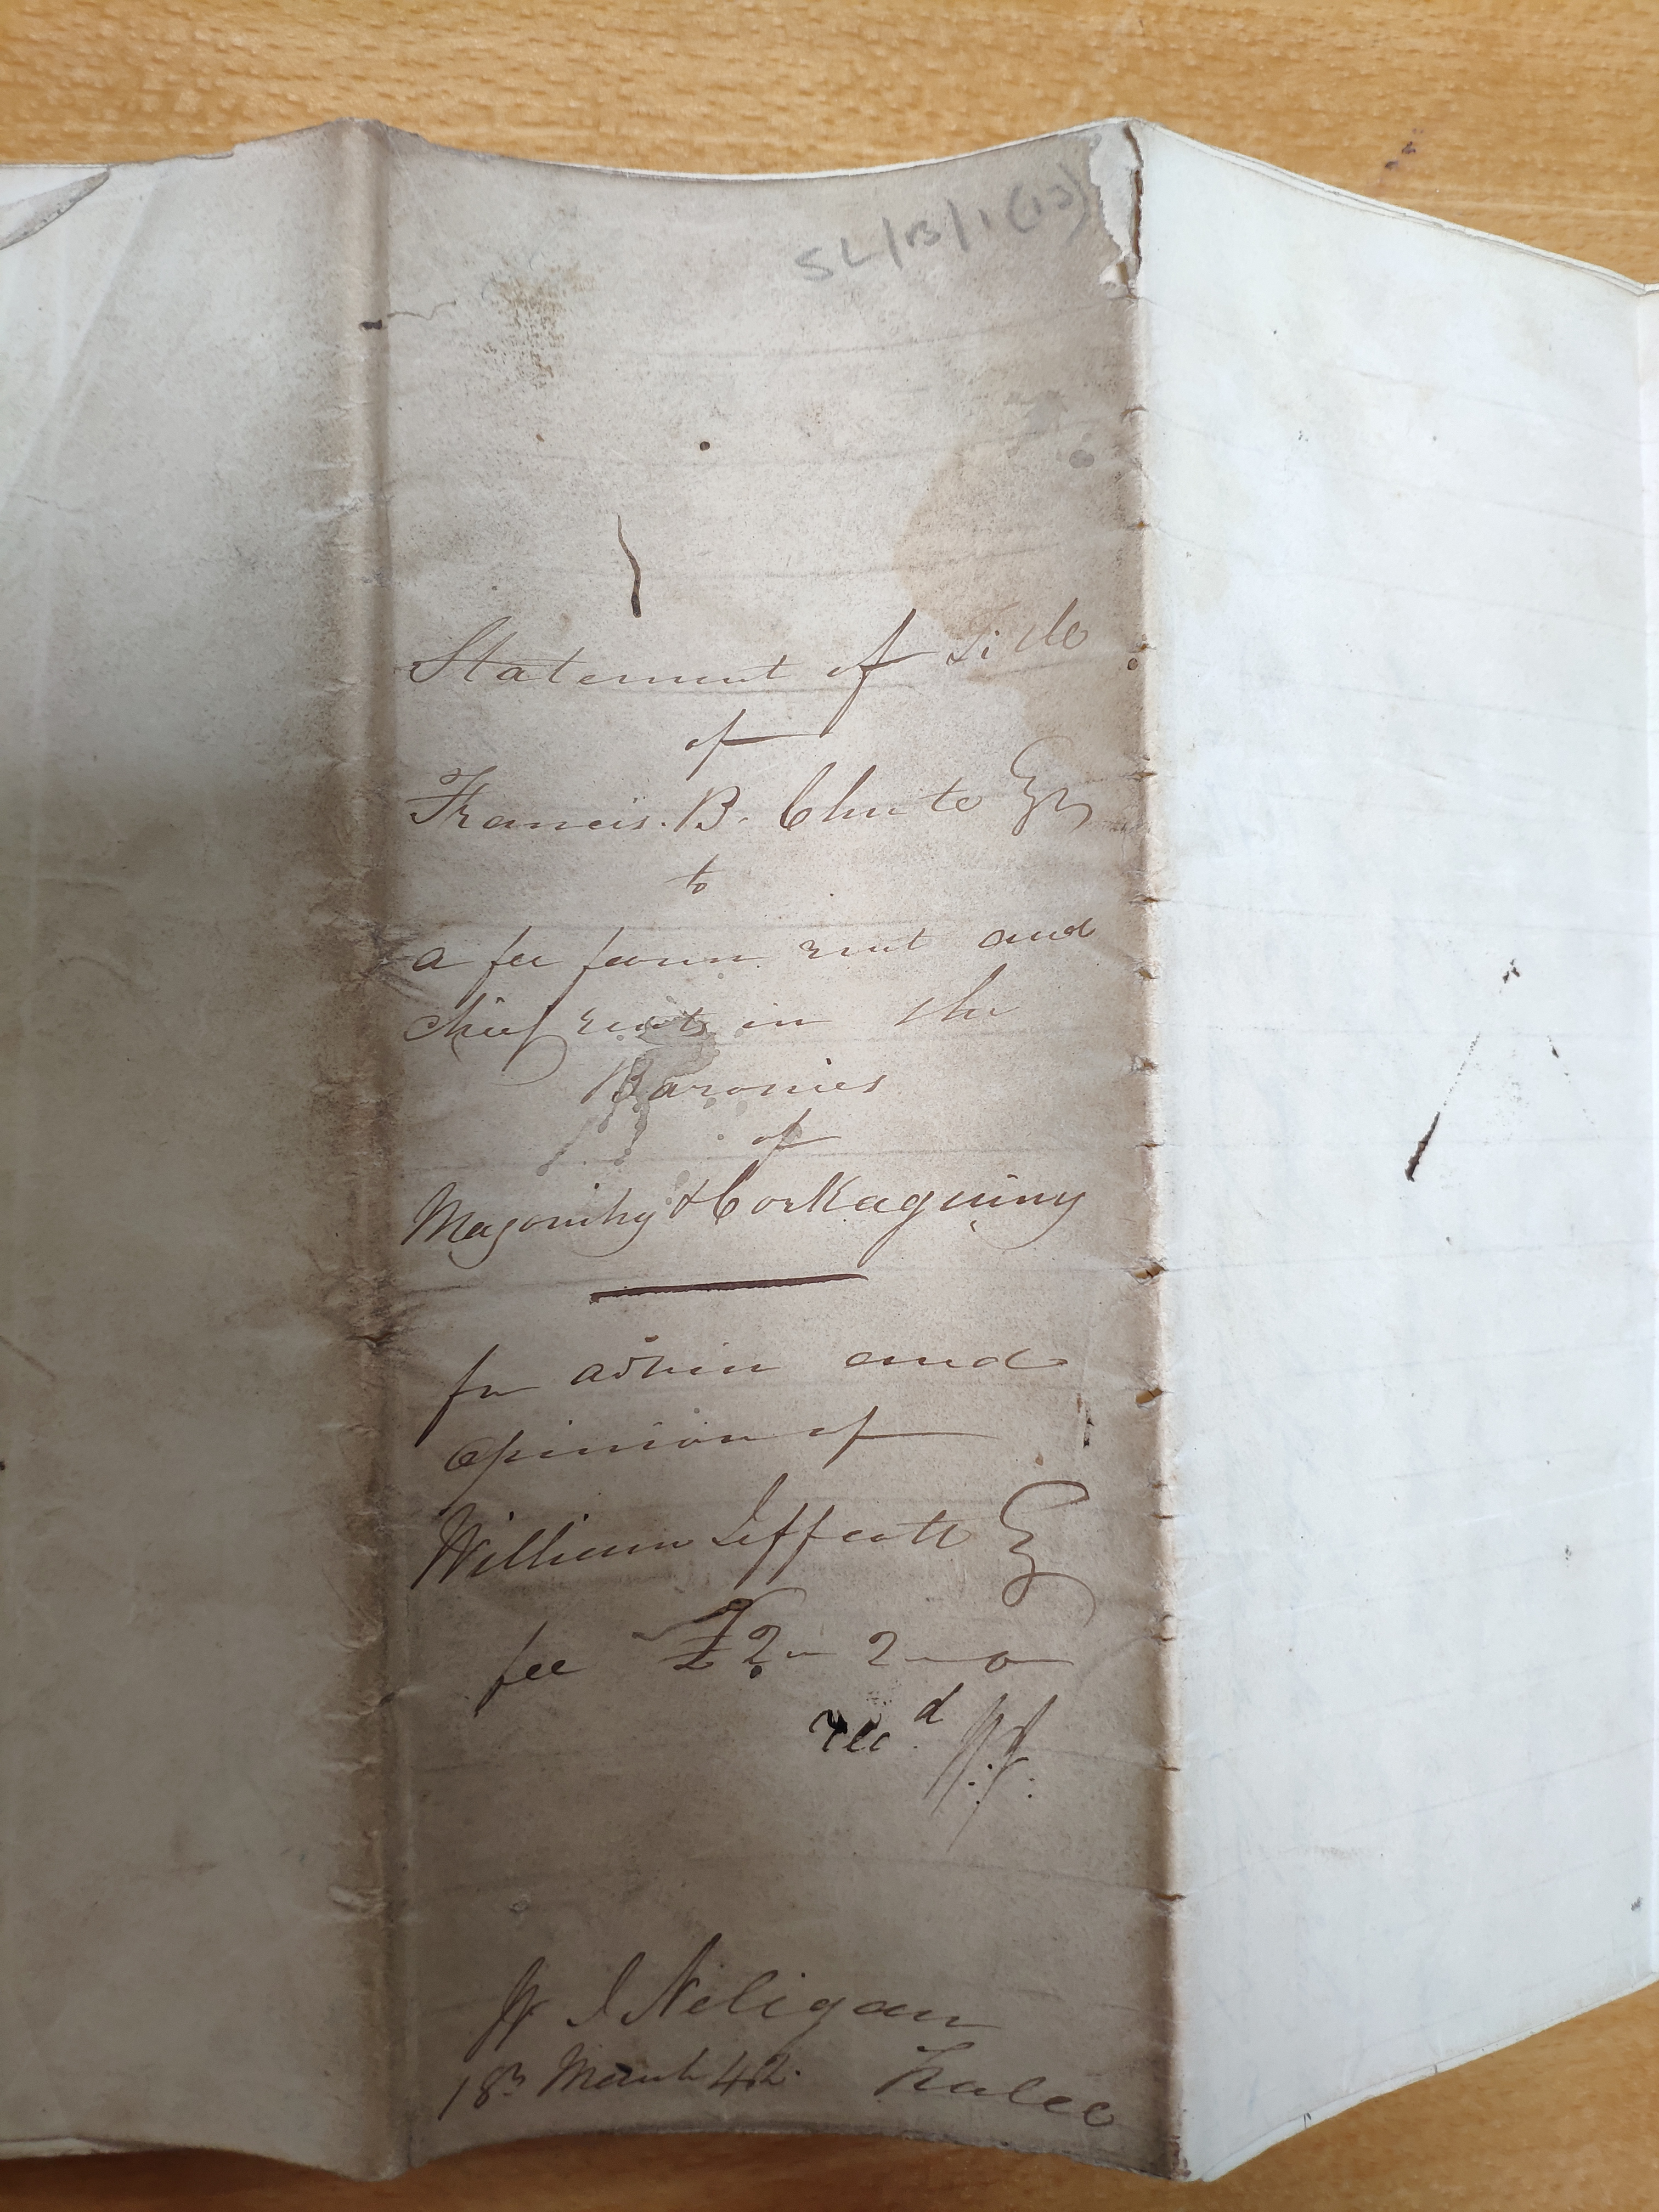 SL/B/1(12)
Statement of Title
of
Francis. B. Chute Esqr
to
a fee farm rent and
chief rents in the
Baronies
of
Magonihy & Corkaguiny
for advice and
opinion of
William Jeffcott Esq
fee £2 - 2 - 0
recd W.J.
W J Neligan
18th March 42. Tralee